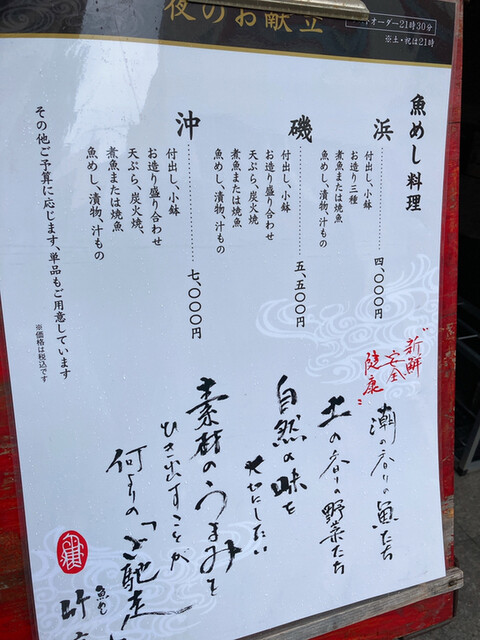 夜のお献立
オーダー21時30分
※土・祝は21時
魚めし料理
浜…………四、〇〇〇円
付出し、小鉢
お造り三種
煮魚または焼魚
魚めし、漬物、汁もの
磯…………五、五〇〇円
付出し、小鉢
お造り盛り合わせ
天ぷら、炭火焼
煮魚または焼魚
魚めし、漬物、汁もの
沖…………七、〇〇〇円
付出し、小鉢
お造り盛り合わせ
天ぷら、炭火焼、
煮魚または焼魚
魚めし、漬物、汁もの
その他ご予算に応じます、単品もご用意しています
※価格は税込です
"新鮮
安全
健康"
潮の香りの魚たち
土の香りの野菜たち
自然の味を
大切にしたい
素材のうまみを
ひき出すことが
何よりの「ご馳走
魚めし